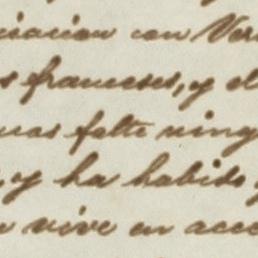 icacion con Ver
s franceses, y el
uas falte ning
, y ha habido
n vive en acce